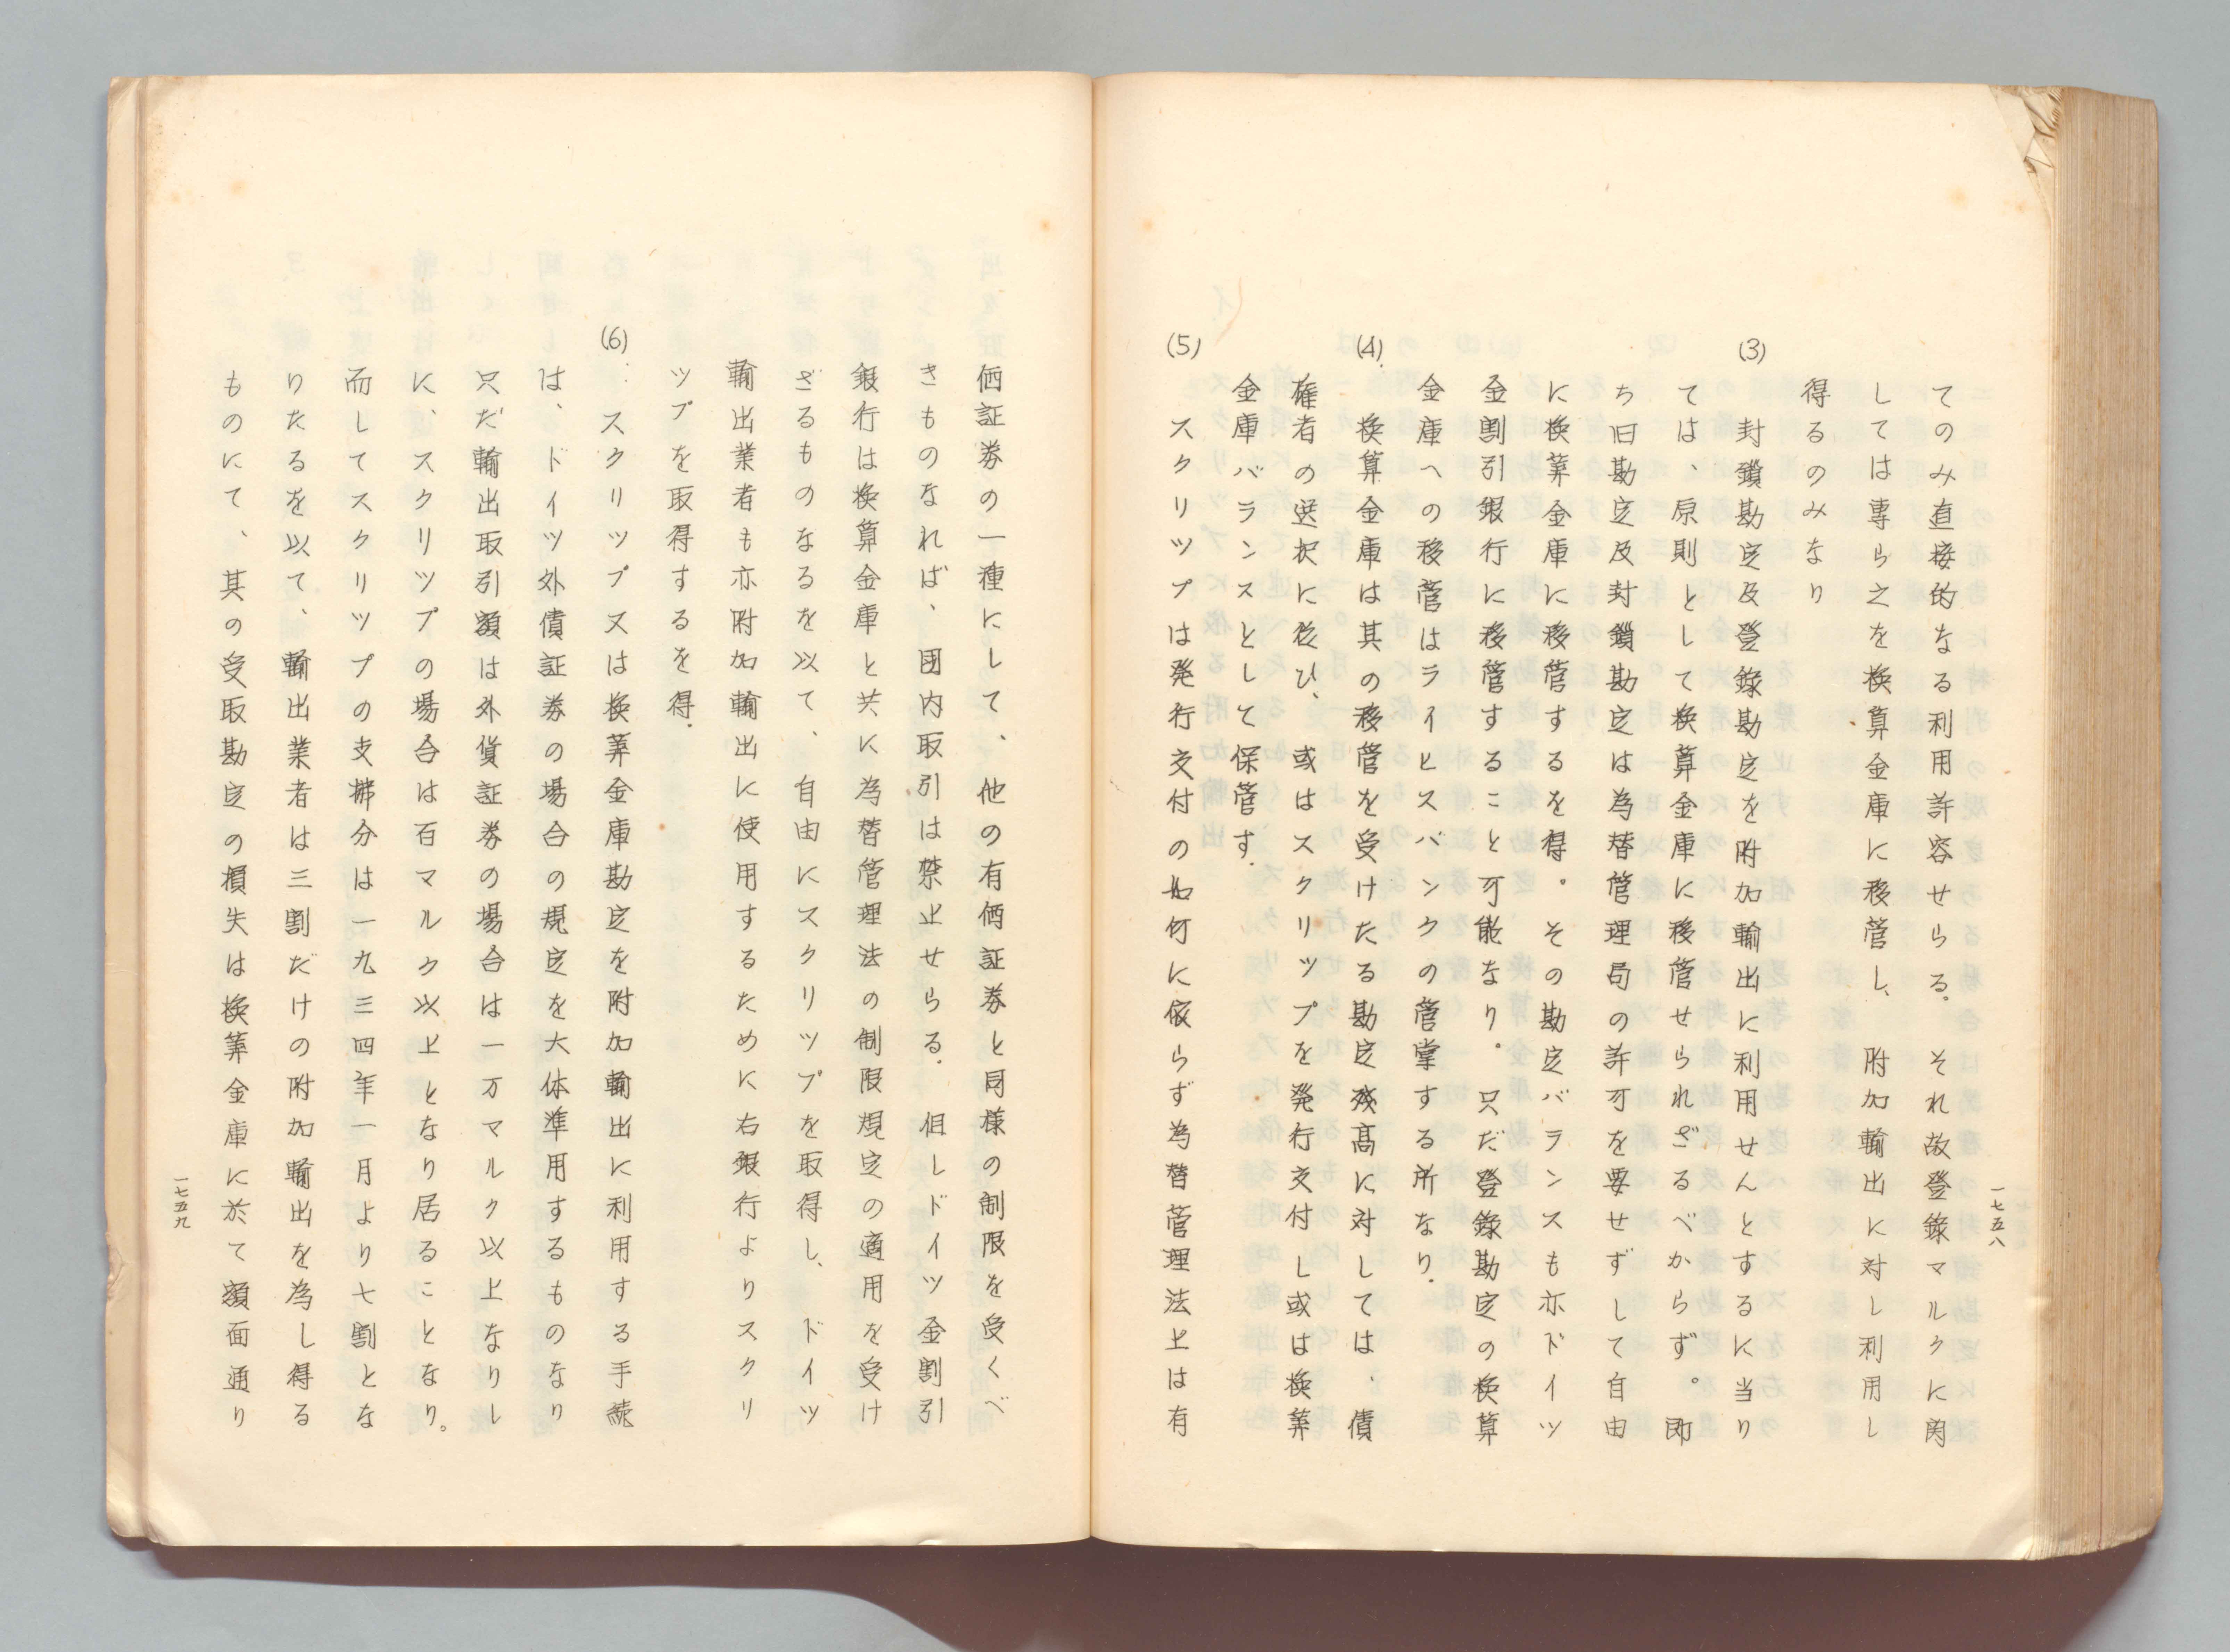 てのみ直接的なる利用許容せらる。それ故登録マルクに関
しては専ら之を換算金庫に移管し、附加輸出に対し利用し
得るのみなり
(3) 封鎖勘定及登録勘定を附加輸出に利用せんとするに当り
ては、原則として換算金庫に移管せられざるべからず。即
ち旧勘定及封鎖勘定は為替管理局の許可を要せずして自由
に換算金庫に移管するを得。その勘定バランスも亦ドイツ
金割引銀行に移管すること可能なり。只だ登録勘定の換算
金庫への移管はライヒスバンクの管掌する所なり.
(4) 換算金庫は其の移管を受けたる勘定残高に対しては、債
権者の選択に從ひ、或はスクリップを発行交付し或は換算
金庫バランスとして保管す.
(5) スクリツプは発行交付の如何に依らず為替管理法上は有
一七五八
価証券の一種にして、他の有価証券と同様の制限を受くべ
きものなれば、国内取引は禁止せらる.但しドイツ金割引
銀行は換算金庫と共に為替管理法の制限規定の適用を受け
ざるものなるを以て、自由にスクリツプを取得し、ドイツ
輸出業者も亦附加輸出に使用するために右銀行よりスクリ
ツプを取得するを得.
(6) スクリツプ又は換算金庫勘定を附加輸出に利用する手続
は、ドイツ外債証券の場合の規定を大体準用するものなり
只だ輸出取引額は外貨証券の場合は一万マルク以上なりし
に、スクリツプの場合は百マルク以上となり居ることなり。
而してスクリツプの支拂分は一九三四年一月より七割とな
りたるを以て、輸出業者は三割だけの附加輸出を為し得る
ものにて、其の受取勘定の損失は換算金庫に於て額面通り
一七五九